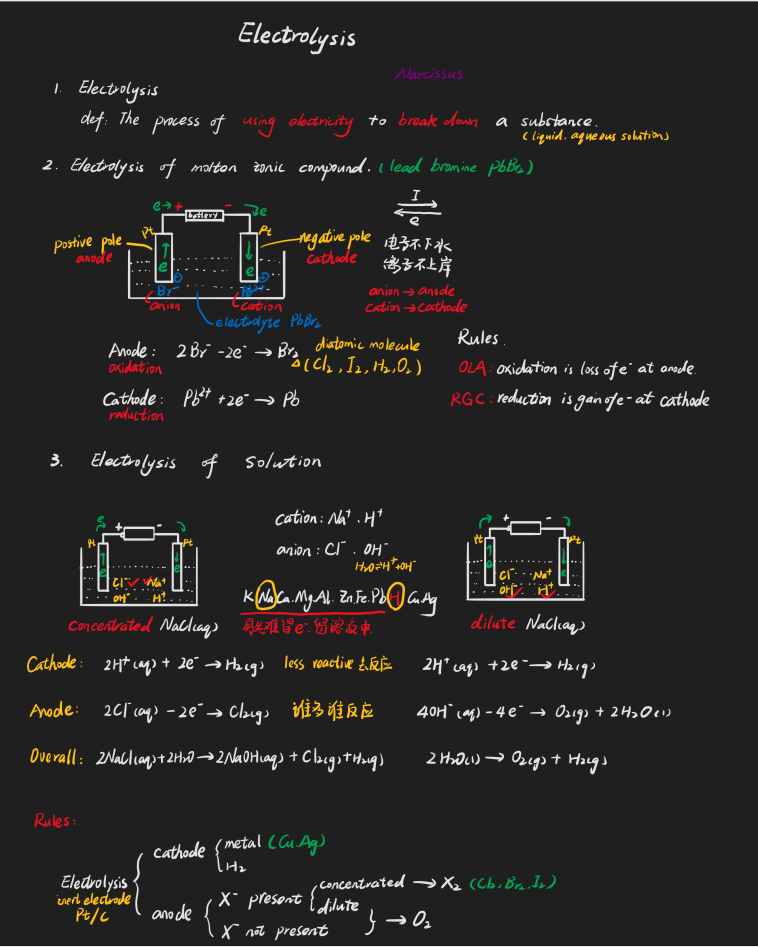 Electrolysis
Narcissus
1. Electrolysis
def: The process of using electricity to break down a substance.
(liquid, aqueous solution)
2. Electrolysis of molton ionic compound. (lead bromine PbBr₂)
e→ + - e
battery
Pt Pt
postive pole
anode
negative pole
cathode
e e
Br⁻ Pb²⁺
anion cation
electrolyte PbBr₂
I
e
电子不下水
离子不上岸
anion → anode
cation → cathode
Anode: 2Br⁻ -2e⁻ → Br₂
oxidation
diatomic molecule
△(Cl₂, I₂, H₂, O₂)
Cathode: Pb²⁺ +2e⁻ → Pb
reduction
Rules.
OLA: oxidation is loss of e⁻ at anode.
RGC: reduction is gain of e- at cathode
3. Electrolysis of solution
e + -
Pt Pt
e e
Cl⁻ ✓ ✓ Na⁺
OH⁻ H⁺
concentrated NaCl(aq)
cation: Na⁺. H⁺
anion: Cl⁻. OH⁻
H₂O⇌H⁺+OH⁻
K Na Ca. Mg Al. Zn Fe. Pb H Cu Ag
易失难得e⁻, 留溶液中
+ -
Pt Pt
e e
Cl⁻ Na⁺
OH⁻ ✓ H⁺ ✓
dilute NaCl(aq)
Cathode: 2H⁺(aq) + 2e⁻ → H₂(g) less reactive 去反应 2H⁺(aq) +2e⁻ → H₂(g)
Anode: 2Cl⁻(aq) - 2e⁻ → Cl₂(g) 谁多谁反应 4OH⁻(aq)-4e⁻ → O₂(g) + 2H₂O(l)
Overall: 2NaCl(aq)+2H₂O→2NaOH(aq) + Cl₂(g)+H₂(g) 2H₂O(l) → O₂(g) + H₂(g)
Rules:
cathode metal (Cu.Ag)
H₂
Electrolysis
inert electrode
Pt/C
anode X⁻ present concentrated → X₂ (Cl₂, Br₂, I₂)
dilute
X⁻ not present → O₂